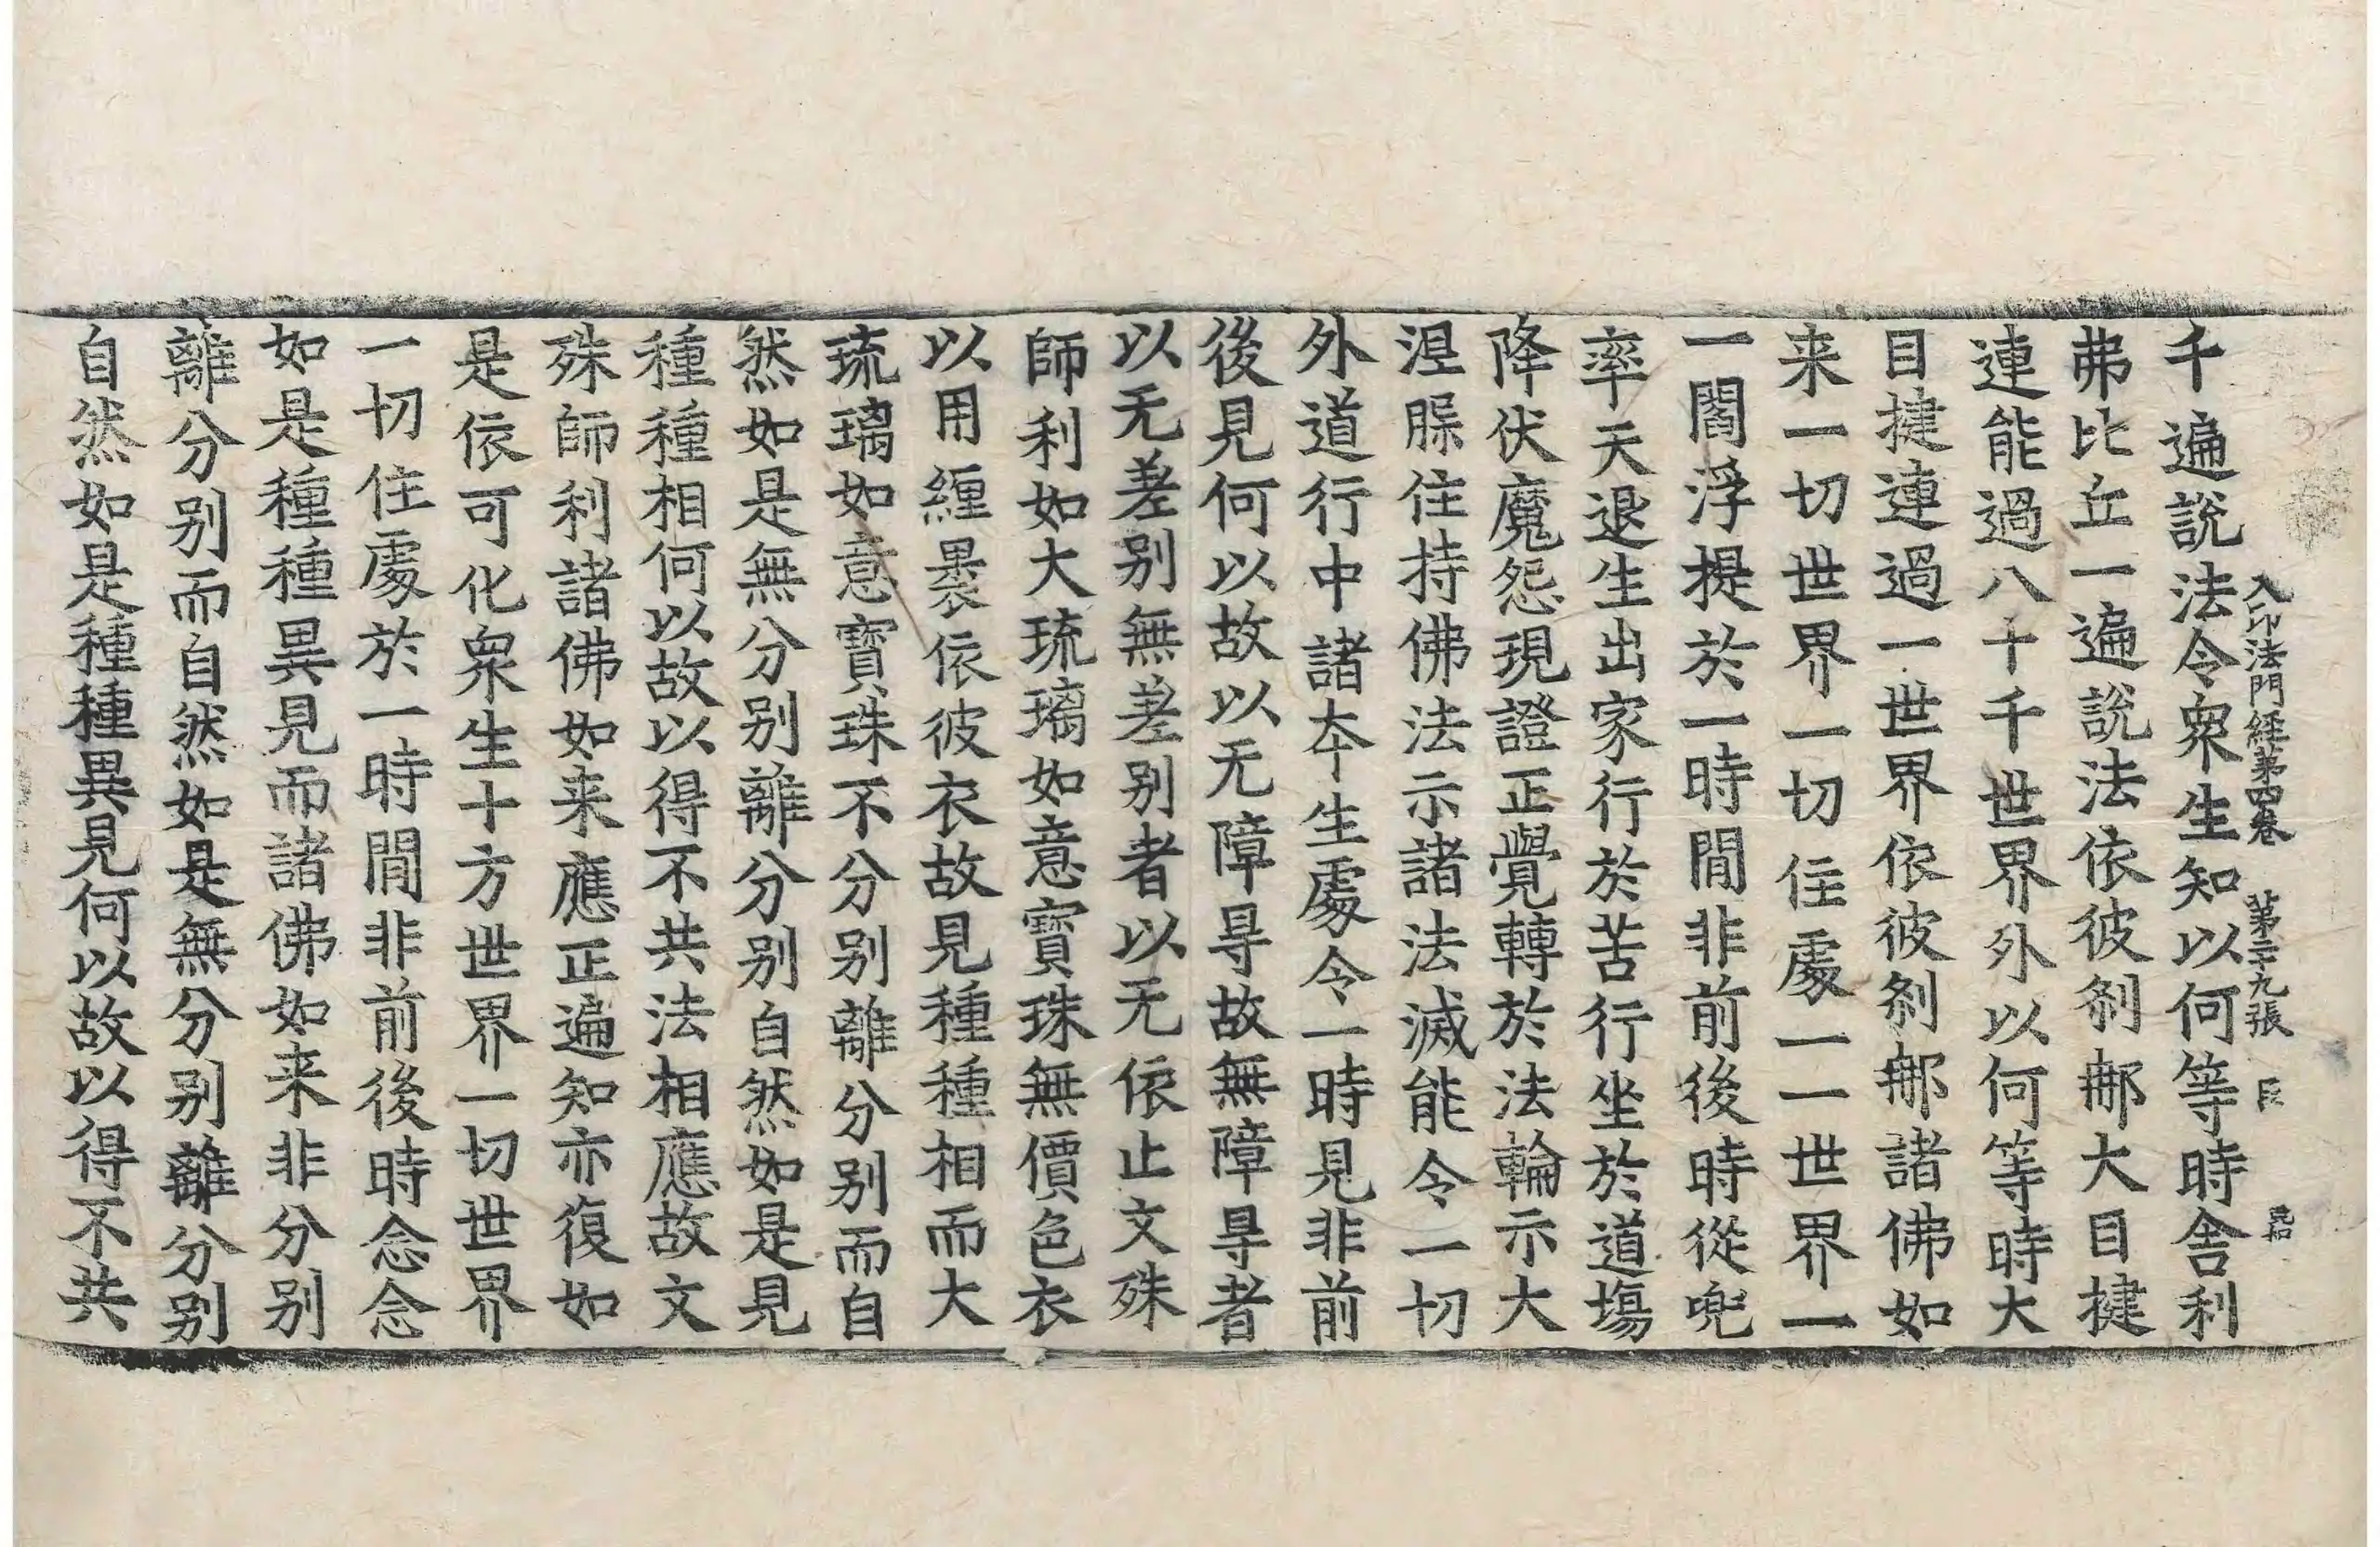 千遍說法令衆生知以何等時舎利
弗比丘一遍說法依彼刹𨙻大目揵
連能過八十千世界外以何等時大
目揵連過一世界依彼刹𨙻諸佛如
来一切世界一切住處一一世界一
一閻浮提於一時閒非前後時從兜
率天退生出家行於苦行坐於道塲
降伏魔怨現證正覺轉於法輪示大
涅腅住持佛法示諸法滅能令一切
外道行中諸夲生處令一時見非前
後見何以故以无障㝵故無障㝵者
以无差别無差别者以无依止文殊
師利如大琉璃如意寶珠無價色衣
以用纏褁依彼衣故見種種相而大
琉璃如意寶珠不分别離分别而自
然如是無分别離分别自然如是見
種種相何以故以得不共法相應故文
殊師利諸佛如来應正遍知亦復如
是依可化衆生十方世界一切世界
一切住處於一時閒非前後時念念
如是種種異見而諸佛如来非分别
離分别而自然如是無分别離分别
自然如是種種異見何以故以得不共
入印法門経第四卷 第二十九張